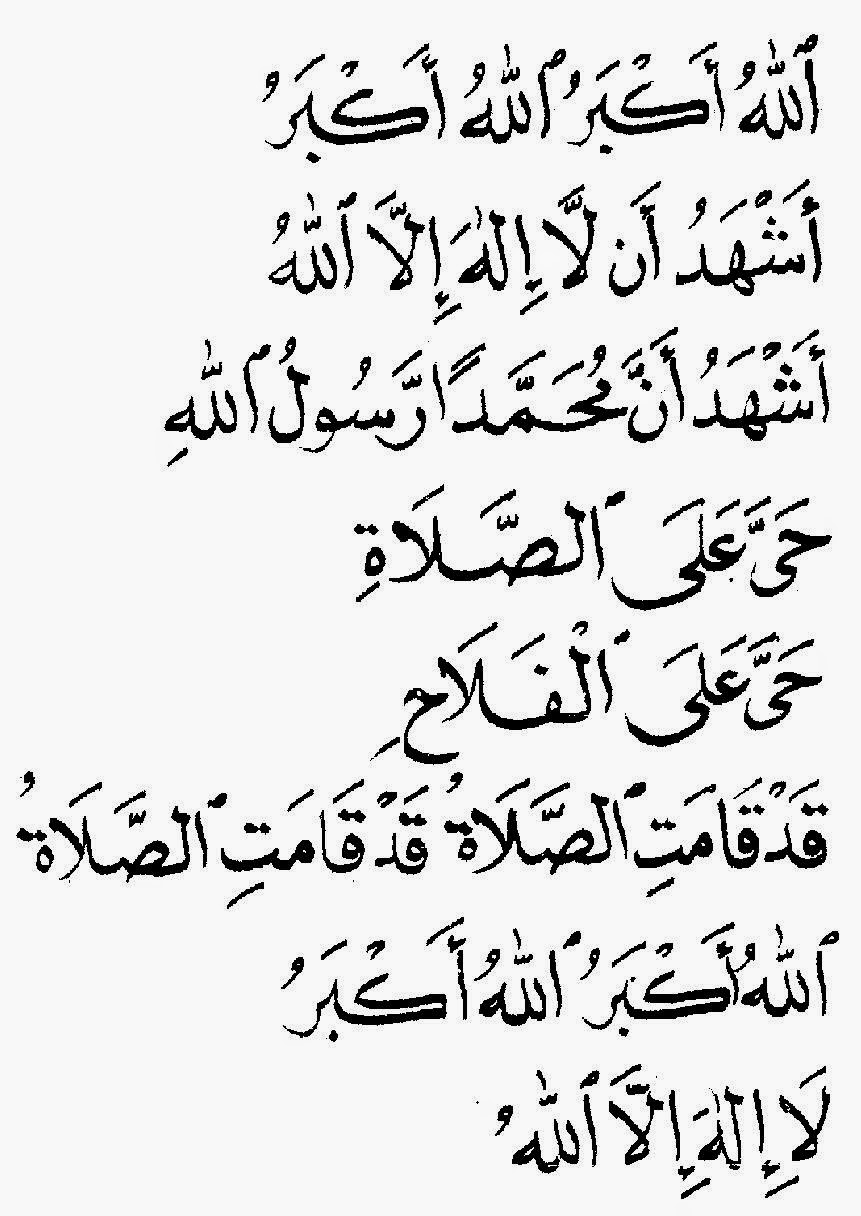 ٱللهُ أَكْبَرُ ٱللهُ أَكْبَرُ
أَشْهَدُ أَن لَّا إِلٰهَ إِلَّا ٱللهُ
أَشْهَدُ أَنَّ مُحَمَّدًا رَّسُولُ ٱللهِ
حَيَّ عَلَى ٱلصَّلَاةِ
حَيَّ عَلَى ٱلْفَلَاحِ
قَدْ قَامَتِ ٱلصَّلَاةُ قَدْ قَامَتِ ٱلصَّلَاةُ
ٱللهُ أَكْبَرُ ٱللهُ أَكْبَرُ
لَا إِلٰهَ إِلَّا ٱللهُ